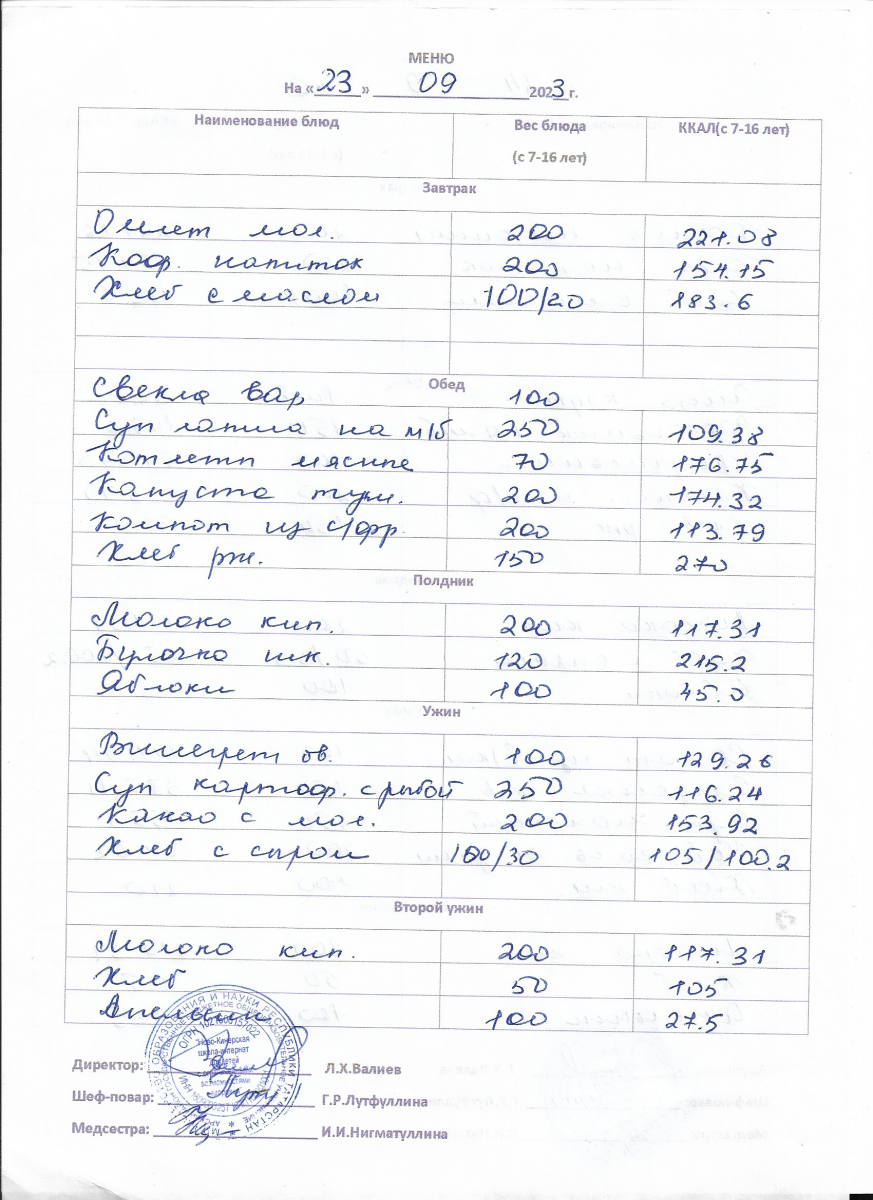 МЕНЮ
На «23» 09 2023 г.
Наименование блюд Вес блюда (с 7-16 лет) ККАЛ(с 7-16 лет)
Завтрак
Омлет мол. 200 221.08
Коф. напиток 200 154.15
Хлеб с маслом 100/20 183.6
Обед
Свекла вар 100
Суп лапша на м/б 250 109.38
Котлеты мясные 70 176.75
Капуста туш. 200 174.32
Компот из с/фр. 200 113.79
Хлеб рж. 150 270
Полдник
Молоко кип. 200 117.31
Булочка шк. 120 215.2
Яблоки 100 45.0
Ужин
Винегрет ов. 100 129.26
Суп картоф. с рыбой 250 116.24
Какао с мол. 200 153.92
Хлеб с сыром 100/30 105/100.2
Второй ужин
Молоко кип. 200 117.31
Хлеб 50 105
Апельсин 100 27.5
Директор: Л.Х.Валиев
Шеф-повар: Г.Р.Лутфуллина
Медсестра: И.И.Нигматуллина